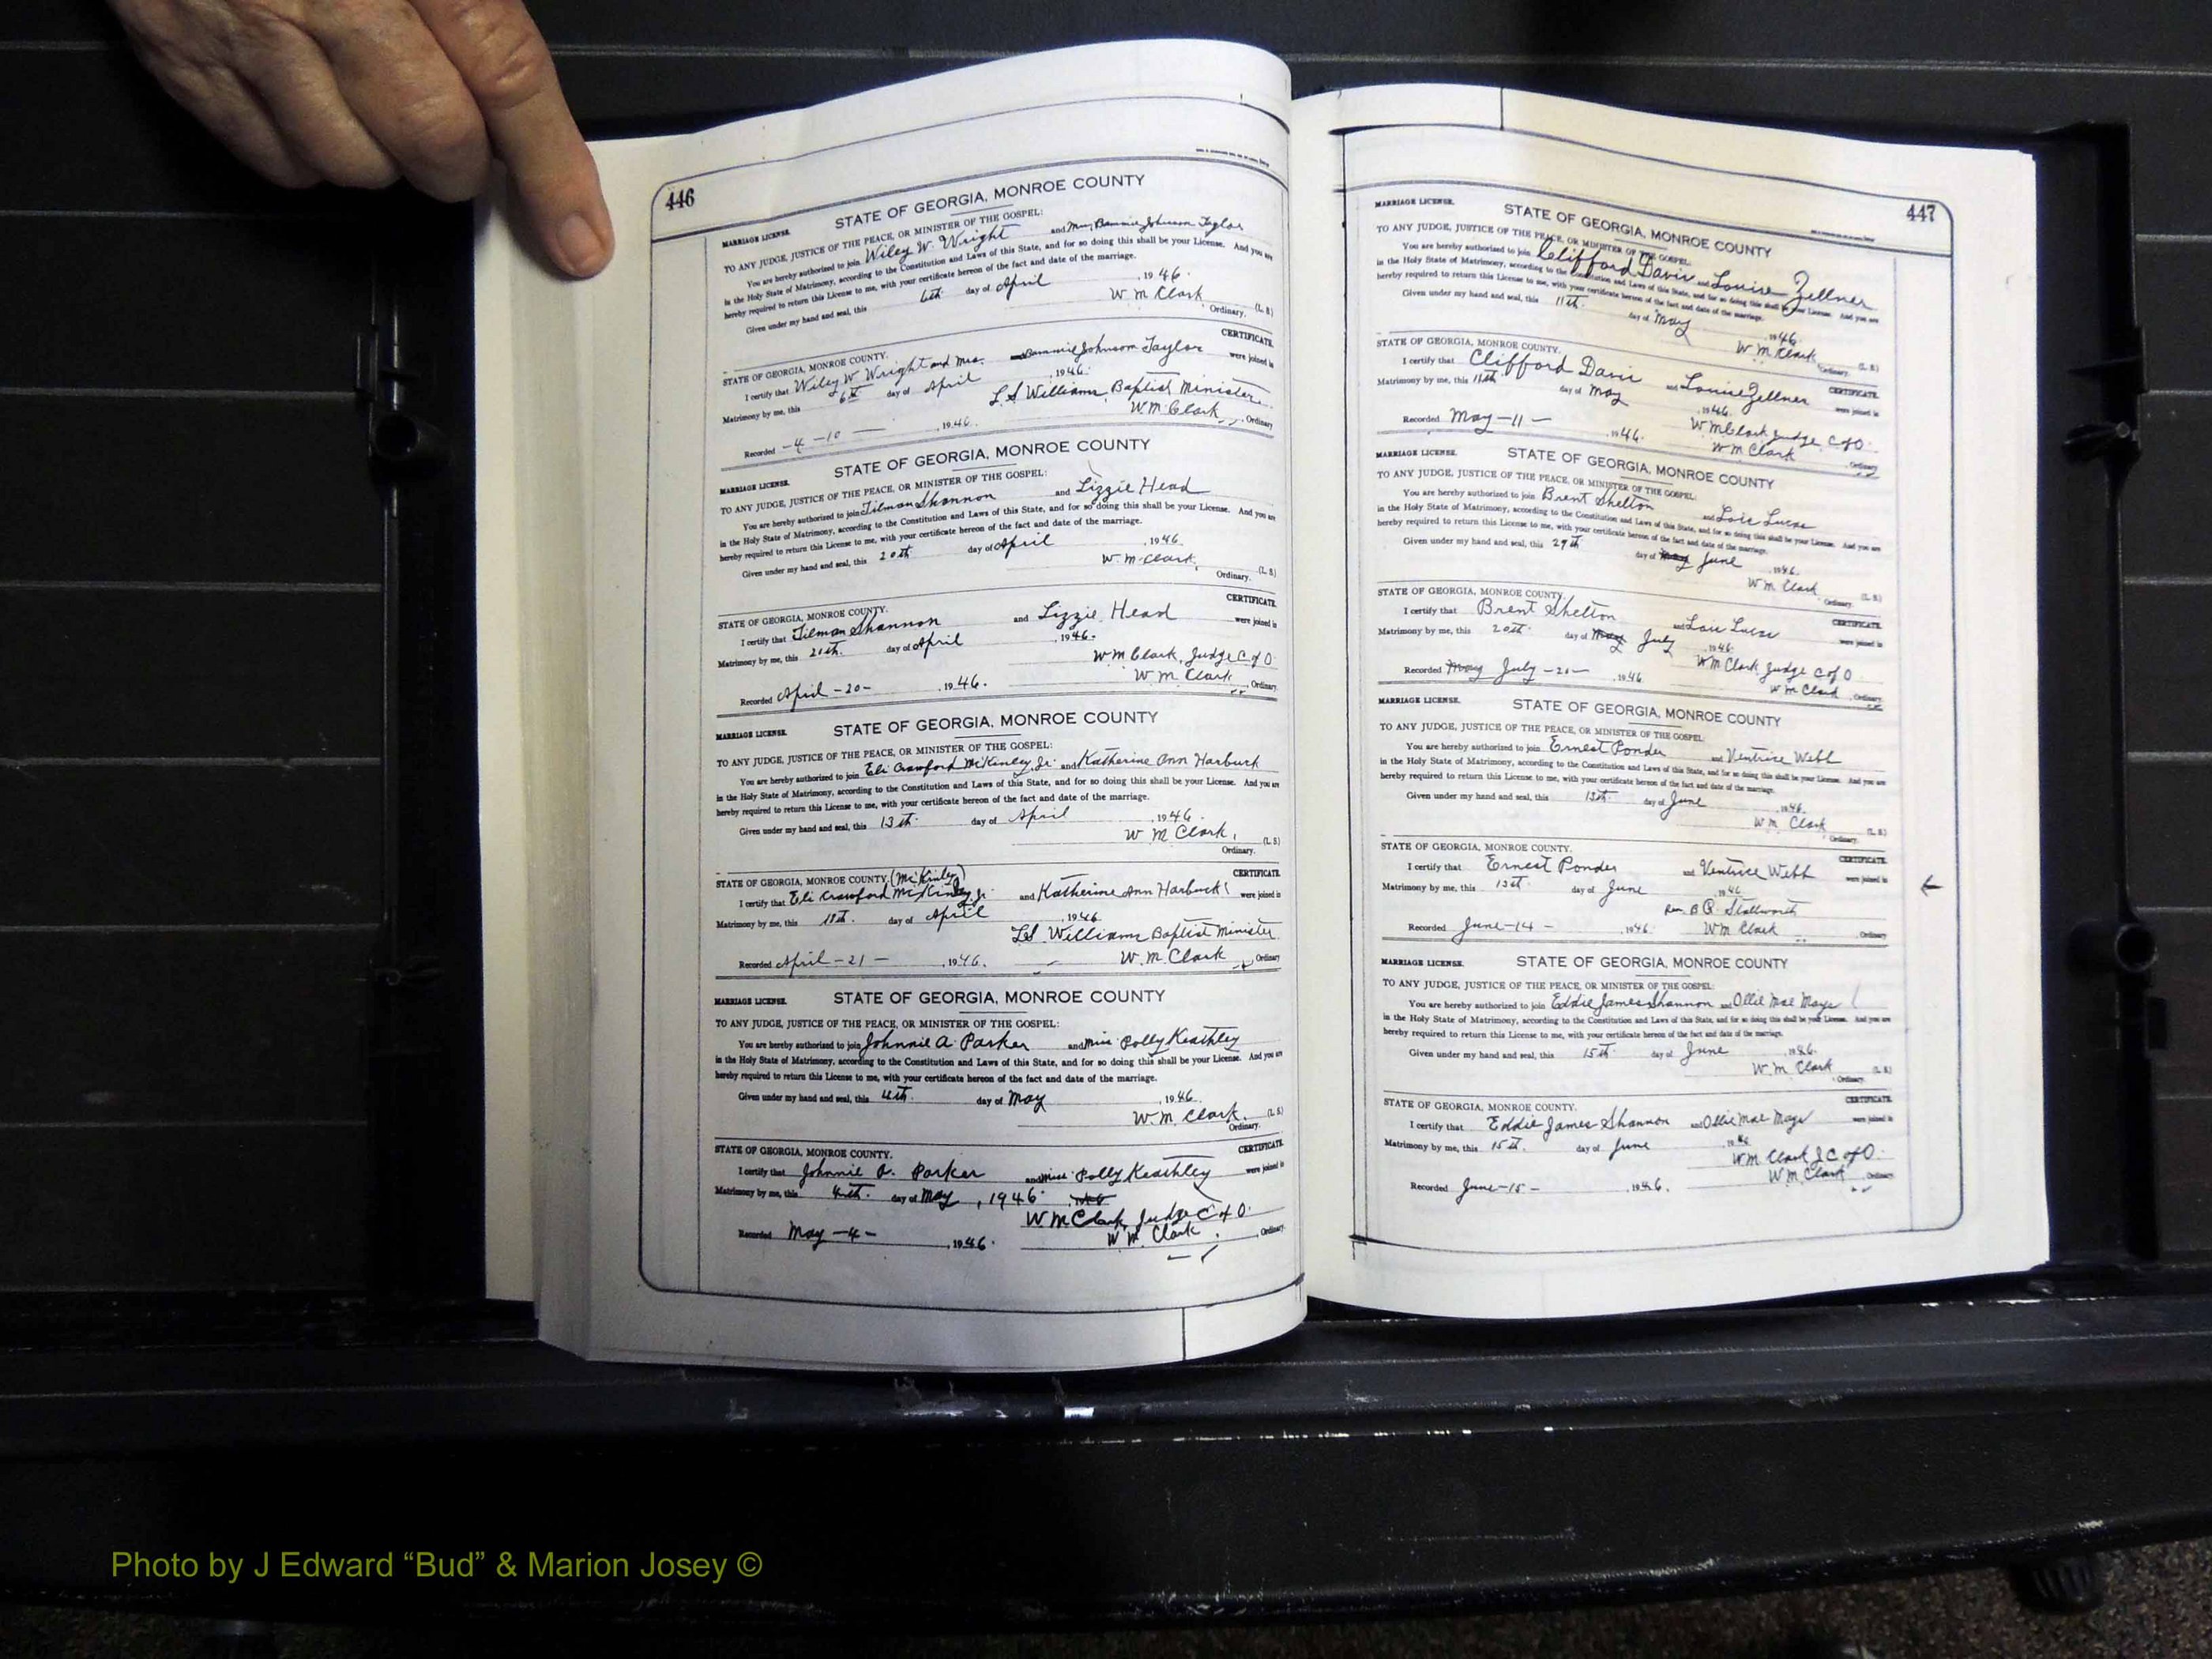 446
STATE OF GEORGIA, MONROE COUNTY
MARRIAGE LICENSE.
TO ANY JUDGE, JUSTICE OF THE PEACE, OR MINISTER OF THE GOSPEL:
You are hereby authorized to join Wiley W. Wright and Mrs. Johnson Taylor
in the Holy State of Matrimony, according to the Constitution and Laws of this State, and for so doing this shall be your License. And you are
hereby required to return this License to me, with your certificate hereon of the fact and date of the marriage.
Given under my hand and seal, this 6th day of April, 1946.
W. M. Clark (L. S.)
Ordinary.
CERTIFICATE.
STATE OF GEORGIA, MONROE COUNTY.
I certify that Wiley W. Wright and Mrs. Johnson Taylor were joined in
Matrimony by me, this 6th day of April, 1946.
L. S. Williams, Baptist Minister.
Recorded -4-10-, 1946. W. M. Clark, Ordinary
STATE OF GEORGIA, MONROE COUNTY
MARRIAGE LICENSE.
TO ANY JUDGE, JUSTICE OF THE PEACE, OR MINISTER OF THE GOSPEL:
You are hereby authorized to join Tilman Shannon and Lizzie Head
in the Holy State of Matrimony, according to the Constitution and Laws of this State, and for so doing this shall be your License. And you are
hereby required to return this License to me, with your certificate hereon of the fact and date of the marriage.
Given under my hand and seal, this 20th day of April, 1946.
W. M. Clark, (L. S.)
Ordinary.
CERTIFICATE.
STATE OF GEORGIA, MONROE COUNTY.
I certify that Tilman Shannon and Lizzie Head were joined in
Matrimony by me, this 20th. day of April, 1946.
W M Clark, Judge C of O.
Recorded April-20-, 1946. W. M. Clark, Ordinary
STATE OF GEORGIA, MONROE COUNTY
MARRIAGE LICENSE.
TO ANY JUDGE, JUSTICE OF THE PEACE, OR MINISTER OF THE GOSPEL:
You are hereby authorized to join Eli Crawford McKinley, Jr. and Katherine Ann Harbuck
in the Holy State of Matrimony, according to the Constitution and Laws of this State, and for so doing this shall be your License. And you are
hereby required to return this License to me, with your certificate hereon of the fact and date of the marriage.
Given under my hand and seal, this 13th. day of April, 1946.
W. M. Clark, (L. S.)
Ordinary.
CERTIFICATE.
STATE OF GEORGIA, MONROE COUNTY. (McKinley)
I certify that Eli Crawford McKinley Jr. and Katherine Ann Harbuck were joined in
Matrimony by me, this day of April, 1946.
L.S. Williams Baptist Minister.
Recorded April-21-, 1946. W. M. Clark, Ordinary
STATE OF GEORGIA, MONROE COUNTY
MARRIAGE LICENSE.
TO ANY JUDGE, JUSTICE OF THE PEACE, OR MINISTER OF THE GOSPEL:
You are hereby authorized to join Johnnie A. Parker and Miss Polly Keathley
in the Holy State of Matrimony, according to the Constitution and Laws of this State, and for so doing this shall be your License. And you are
hereby required to return this License to me, with your certificate hereon of the fact and date of the marriage.
Given under my hand and seal, this 4th. day of May, 1946.
W. M. Clark. (L. S.)
Ordinary.
CERTIFICATE.
STATE OF GEORGIA, MONROE COUNTY.
I certify that Johnnie A. Parker and Miss Polly Keathley were joined in
Matrimony by me, this 4th. day of May, 1946.
W M Clark, Judge C of O.
Recorded May-4-, 1946. W. M. Clark, Ordinary
447
MARRIAGE LICENSE.
STATE OF GEORGIA, MONROE COUNTY
TO ANY JUDGE, JUSTICE OF THE PEACE, OR MINISTER OF THE GOSPEL:
You are hereby authorized to join Clifford Davis and Louise Zellner
in the Holy State of Matrimony, according to the Constitution and Laws of this State, and for so doing this shall be your License. And you are
hereby required to return this License to me, with your certificate hereon of the fact and date of the marriage.
Given under my hand and seal, this 11th. day of May, 1946.
W. M. Clark (L. S.)
Ordinary.
CERTIFICATE.
STATE OF GEORGIA, MONROE COUNTY.
I certify that Clifford Davis and Louise Zellner were joined in
Matrimony by me, this 11th day of May, 1946.
W M Clark Judge C of O.
Recorded May-11-, 1946. W M Clark, Ordinary
MARRIAGE LICENSE.
STATE OF GEORGIA, MONROE COUNTY
TO ANY JUDGE, JUSTICE OF THE PEACE, OR MINISTER OF THE GOSPEL:
You are hereby authorized to join Brent Shelton and Lois Lucas
in the Holy State of Matrimony, according to the Constitution and Laws of this State, and for so doing this shall be your License. And you are
hereby required to return this License to me, with your certificate hereon of the fact and date of the marriage.
Given under my hand and seal, this 29th day of May June, 1946.
W M Clark (L. S.)
Ordinary.
CERTIFICATE.
STATE OF GEORGIA, MONROE COUNTY.
I certify that Brent Shelton and Lois Lucas were joined in
Matrimony by me, this 20th. day of May July, 1946.
W M Clark Judge C of O
Recorded May July-20-, 1946 W M Clark, Ordinary
MARRIAGE LICENSE.
STATE OF GEORGIA, MONROE COUNTY
TO ANY JUDGE, JUSTICE OF THE PEACE, OR MINISTER OF THE GOSPEL:
You are hereby authorized to join Ernest Ponder and Ventrice Webb
in the Holy State of Matrimony, according to the Constitution and Laws of this State, and for so doing this shall be your License. And you are
hereby required to return this License to me, with your certificate hereon of the fact and date of the marriage.
Given under my hand and seal, this 13th. day of June, 1946.
W. M. Clark (L. S.)
Ordinary.
CERTIFICATE.
STATE OF GEORGIA, MONROE COUNTY.
I certify that Ernest Ponder and Ventrice Webb were joined in
Matrimony by me, this 13th. day of June, 1946
Rev. B Stallworth
Recorded June-14-, 1946. W M Clark, Ordinary
MARRIAGE LICENSE.
STATE OF GEORGIA, MONROE COUNTY
TO ANY JUDGE, JUSTICE OF THE PEACE, OR MINISTER OF THE GOSPEL:
You are hereby authorized to join Eddie James Shannon and Ollie Mae Mays
in the Holy State of Matrimony, according to the Constitution and Laws of this State, and for so doing this shall be your License. And you are
hereby required to return this License to me, with your certificate hereon of the fact and date of the marriage.
Given under my hand and seal, this 15th day of June, 1946.
W. M. Clark (L. S.)
Ordinary.
CERTIFICATE.
STATE OF GEORGIA, MONROE COUNTY.
I certify that Eddie James Shannon and Ollie Mae Mays were joined in
Matrimony by me, this 15th. day of June, 1946
W M Clark J C of O.
Recorded June-15-, 1946. W M. Clark, Ordinary
Photo by J Edward “Bud” & Marion Josey ©